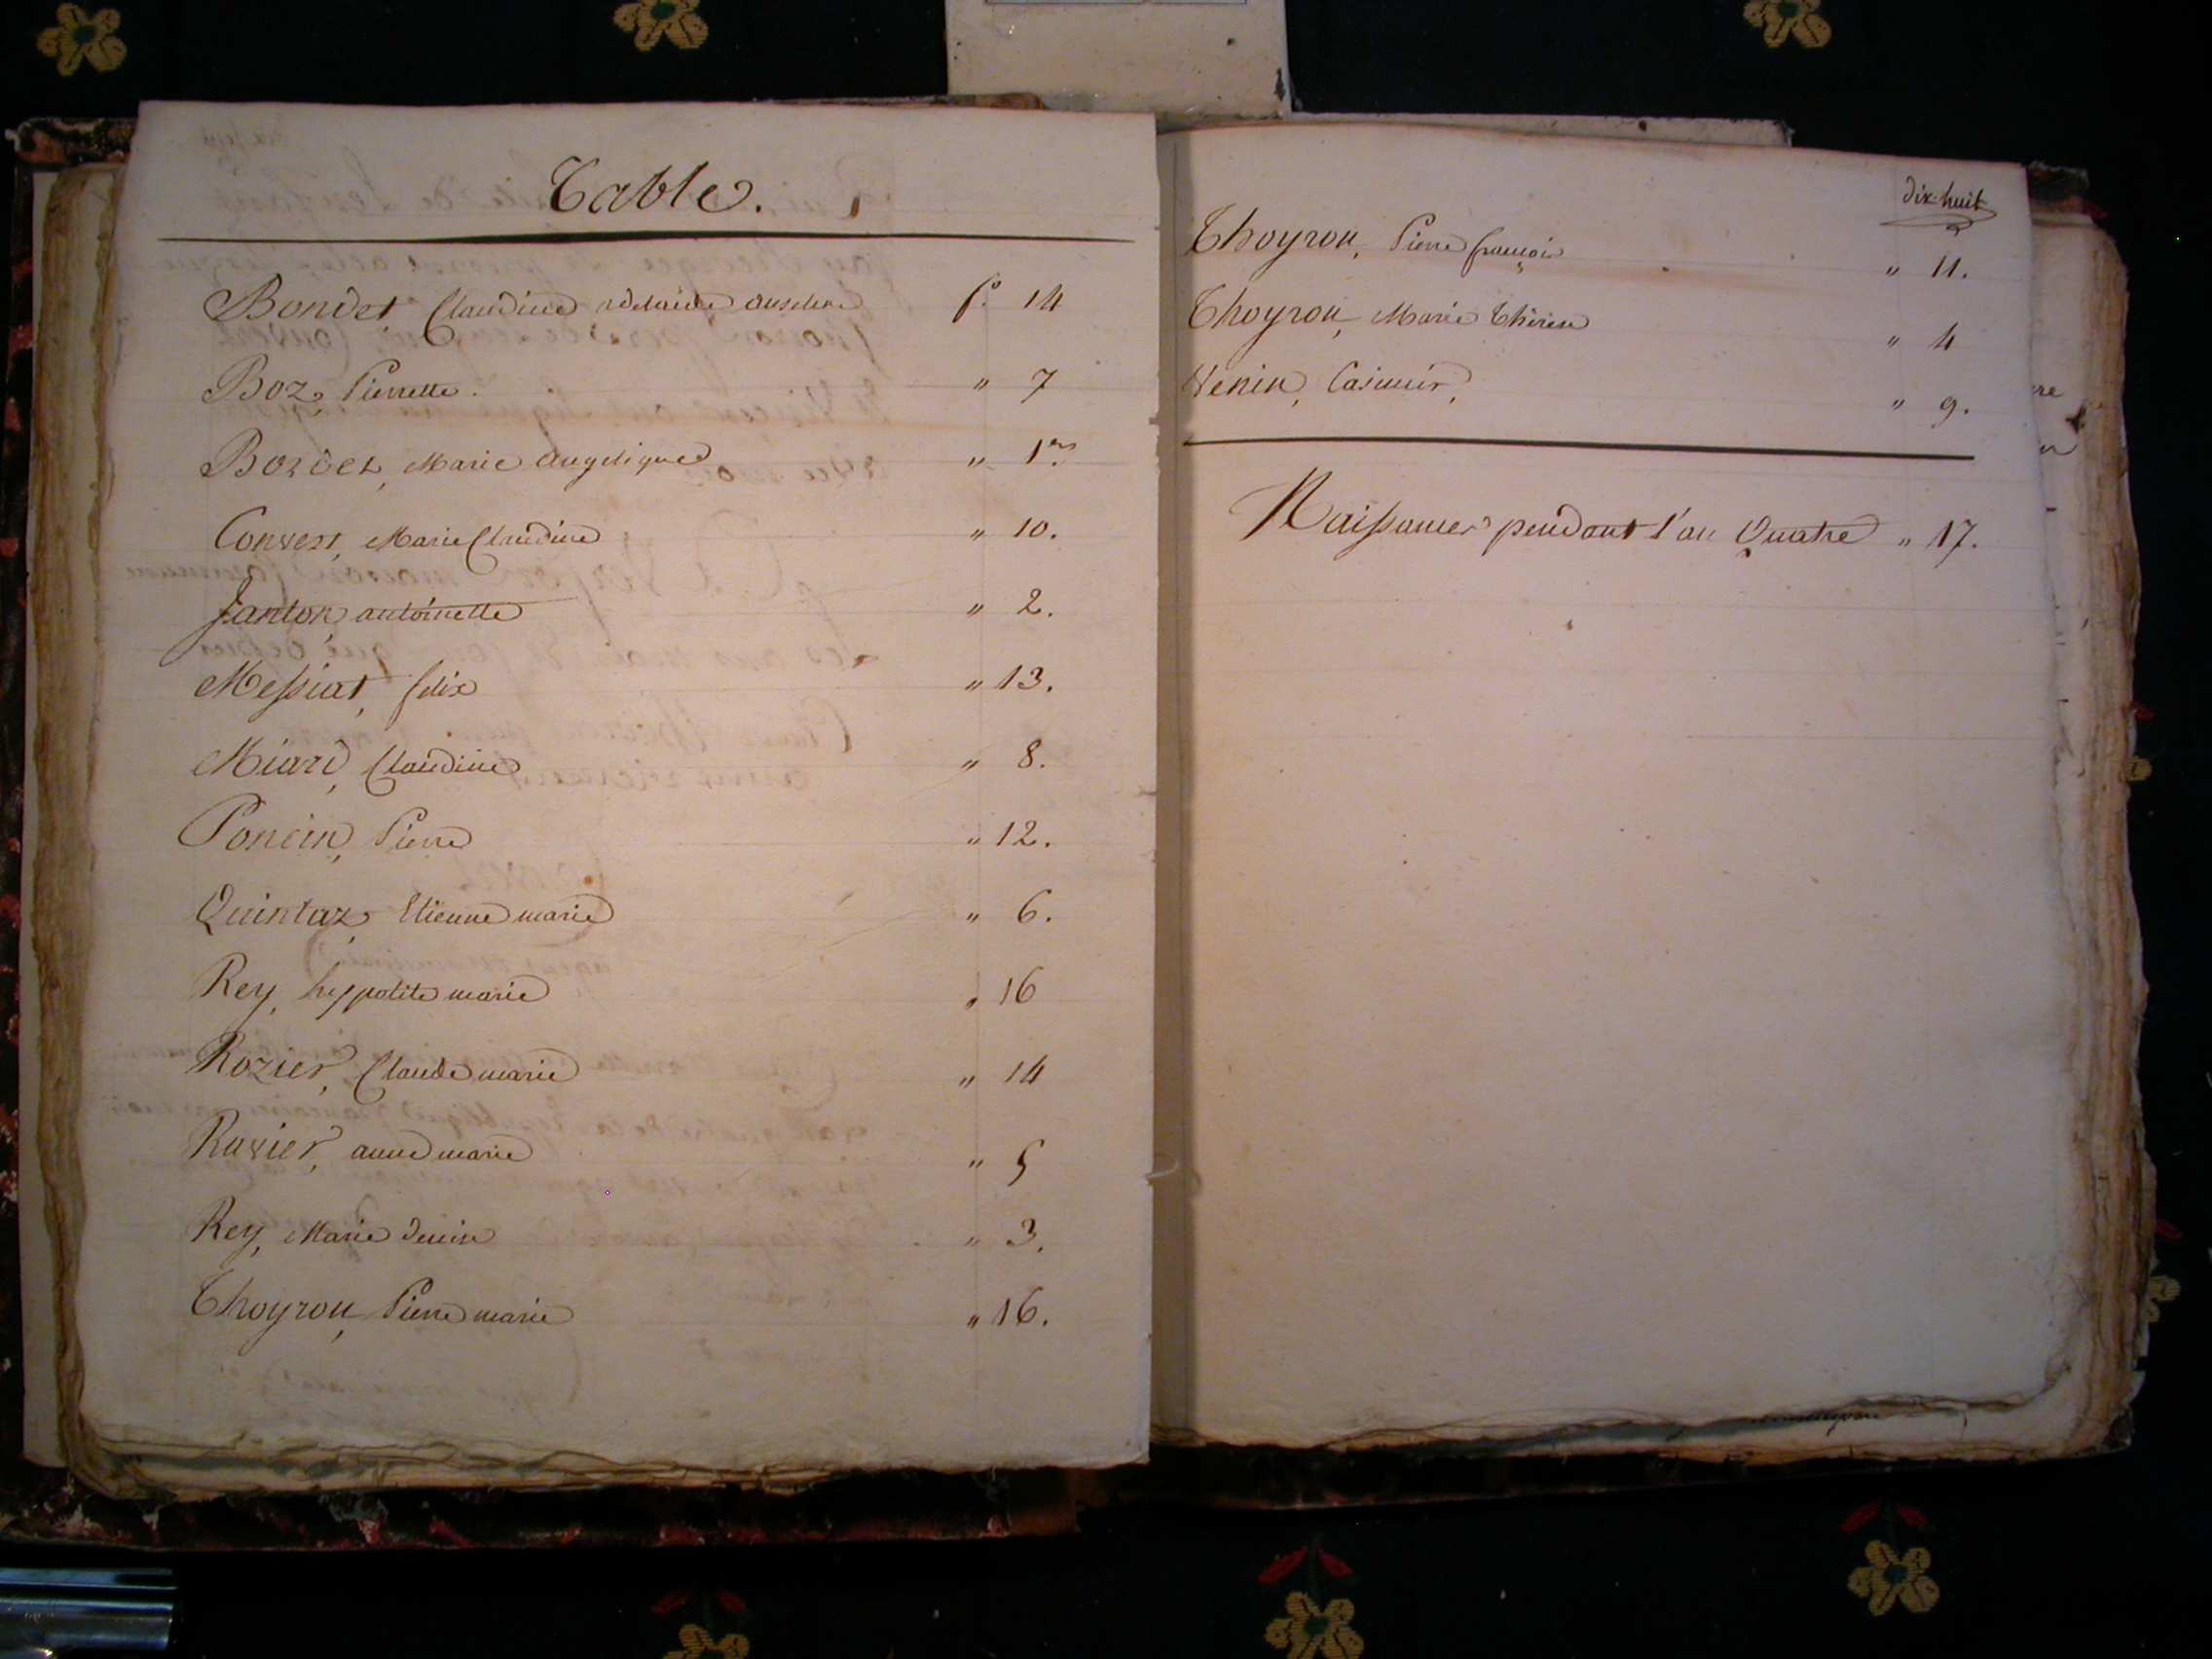 Table.
Bondet Claudine adelaide anselme f.o 14
Boz, Pierrette. " 7
Bordet, Marie Angelique " 1er
Convert, Marie Claudine " 10.
Janton antoinette " 2.
Messiat, felix " 13.
Miard, Claudine " 8.
Poncin, Pierre " 12.
Quintaz, Etienne marie " 6.
Rey, hyppolite marie " 16
Rozier, Claude marie " 14
Ravier, anne marie " 5
Rey, Marie denise " 3.
Thoyron, Pierre marie " 16.
dix-huit
Thoyron, Pierre françois " 11.
Thoyron, Marie Thérèse " 4
Venin, Casimir, " 9.
Naissances pendant l'an Quatre " 17.